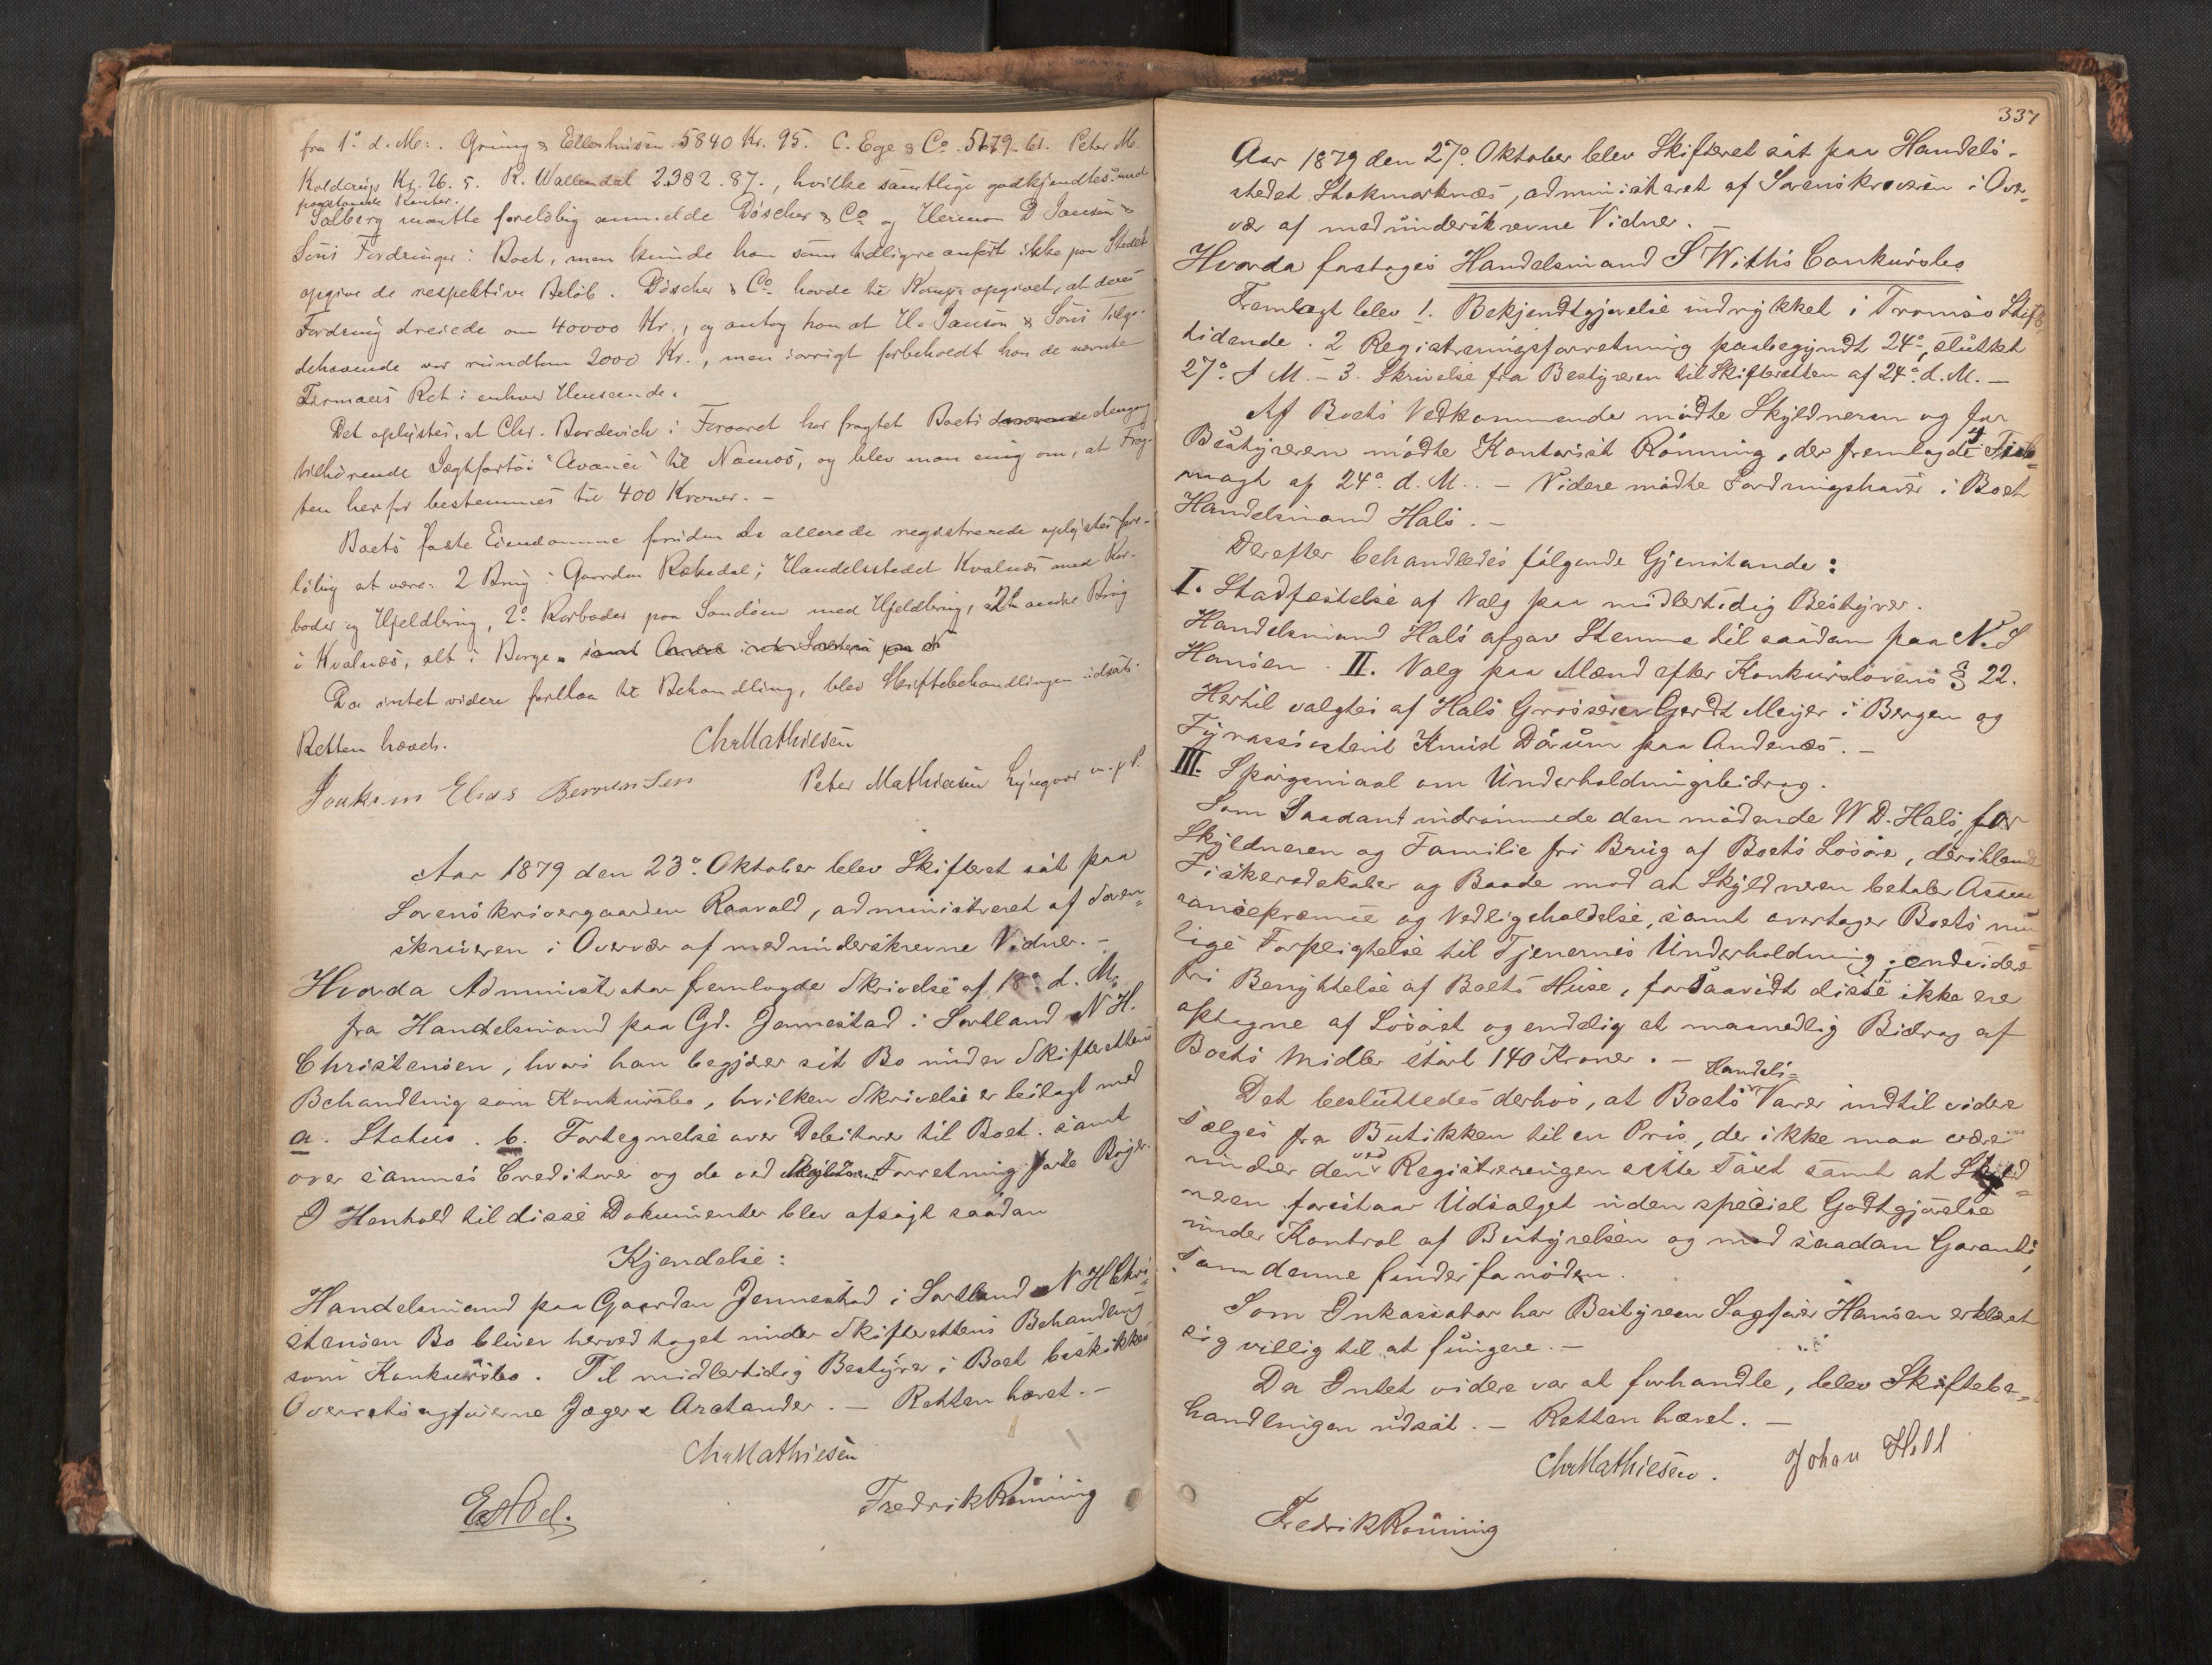 fra 1º d. M. Gruning & Ellerhusen 5840 Kr. 95. C. Ege & Co. 5179.61. Peter M.
Kolderup Kr. 26.5. R. Wallendal 2382.87., hvilke samtlige godkjendtes med
paastaaede Renter.
Solberg maatte foreløbig anmelde Döscher & Co og Herman D Jansen &
Søns Fordringer i Boet, men kunde han som tidligere anført ikke paa Stedet
opgive de respektive Beløb. Döscher & Co havde til Komp. opgivet, at deres
Fordring dreiede om 40000 Kr., og antog han at H. Jansen & Søns Tilgo-
dehavende var rundtom 2000 Kr., men iøvrigt forbeholdt han de nævnte
Firmaers Ret i enhver Henseende.
Det oplystes, at Chr. Bordevich i Foraaret har fragtet Boets dengang
tilhørende Jægtfartøi "Avance" til Namsos, og blev man enig om, at Frag-
ten herfor bestemmes til 400 Kroner. -
Boets faste Eiendomme foruden de allerede registrerede oplystes fore-
løbig at være: 2 Brug i Gaarden Rekedal; Handelsstedet Kvalnes med Ror-
boder og Hjeldbrug, 2º Rorboder paa Sandøen med Hjeldbrug, 2de andre Brug
i Kvalnæs, alt i Borge.
Da intet videre forelaa til Behandling, blev Skiftebehandlingen udsat.
Retten hævet.
Chr Mathiesen
Joakim Elias Berrentsen Peter Mathiesen Lyngvær m. p. P.
Aar 1879 den 23º Oktober blev Skifteret sat paa
Sorenskrivergaarden Raavold, administreret af Soren-
skriveren i Overvær af medunderskrevne Vidner. -
Hvorda Administrator fremlagde Skrivelse af 18º d. M.
fra Handelsmand paa Gd. Jennestad i Sortland N H.
Christensen, hvori han begjærer sit Bo under Skifterettens
Behandling som Konkursbo, hvilken Skrivelse er bilagt med
a. Status. b. Fortegnelse over Debitorer til Boet. samt
over sammes Creditorer og de ved Forretningførte Bøger.
I Henhold til disse Dokumenter blev afsagt saadan
Kjendelse:
Handelsmand paa Gaarden Jennestad i Sortland N H Chri-
stensen Bo bliver herved taget under Skifterettens Behandling
som Konkursbo. Til midlertidig Bestyrer i Boet beskikkes
Overretssagførerne Jæger & Arctander. - Retten hævet. -
Chr Mathiesen
Fredrik Rønning
337
Aar 1879 den 27º Oktober blev Skifteret sat paa Handels-
stedet Stokmarknæs, administreret af Sorenskriveren i Over-
vær af medunderskrevne Vidner.
Hvorda foretoges Handelsmand S Withs Conkursbo
Fremlagt blev 1. Bekjendtgjørelse indrykket i Tromsø Stifts-
tidende. 2 Registreringsforretning paabegyndt 24º, sluttet
27º d M. - 3. Skrivelse fra Bestyreren til Skifteretten af 24º d. M. -
Af Boets Vedkommende mødte Skyldneren og for
Bestyreren mødte Kontorist Rønning, der fremlagde 4 Fuld-
magt af 24º d. M. - Videre mødte Fordringshaver i Boet
Handelsmand Hals. -
Derefter behandledes følgende Gjenstande:
I. Stadfæstelse af Valg paa midlertidig Bestyrer.
Handelsmand Hals afgav Stemme til saadan paa N. S
Hansen. II. Valg paa Mænd efter Konkurslovens § 22.
Hertil valgtes af Hals Grosserer Gerdt Meyer i Bergen og
Fyrassistent Knud Dårum paa Andenæs. -
III. Spørgsmaal om Underholdningsbidrag.
Som Saadant indrømmede den mødende W D. Hals, for
Skyldneren og Familie fri Brug af Boets Løsøre, deriblandt
Fiskeredskaber og Baade mod at Skyldneren betaler Assu-
rancepræmie og Vedligeholdelse, samt overtager Boets mu-
lige Forpligtelse til Tjenernes Underholdning; endvidere
fri Benyttelse af Boets Huse, forsaavidt disse ikke ere
optagne af Løsøret og endelig et maanedlig Bidrag af
Boets Midler stort 140 Kroner. -
Handels-
Det besluttedes derhos, at Boets Varer indtil videre
sælges fra Butikken til en Pris, der ikke maa være
mindre den ved Registreringen satte Taxt samt at Skyld-
neren forestaar Udsalget uden speciel Godtgjørelse
under Kontrol af Bestyrelsen og mod saadan Garanti,
som denne finder fornøden.
Som Inkassator har Bestyreren Sagfører Hansen erklæret
sig villig til at fungere. -
Da Intet videre var at forhandle, blev Skiftebe-
handlingen udsat. - Retten hævet. -
Chr Mathiesen. Johan Hell
Fredrik Rønning